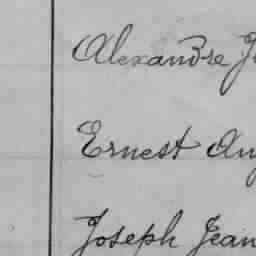 Alexandre
Ernest
Joseph Jean